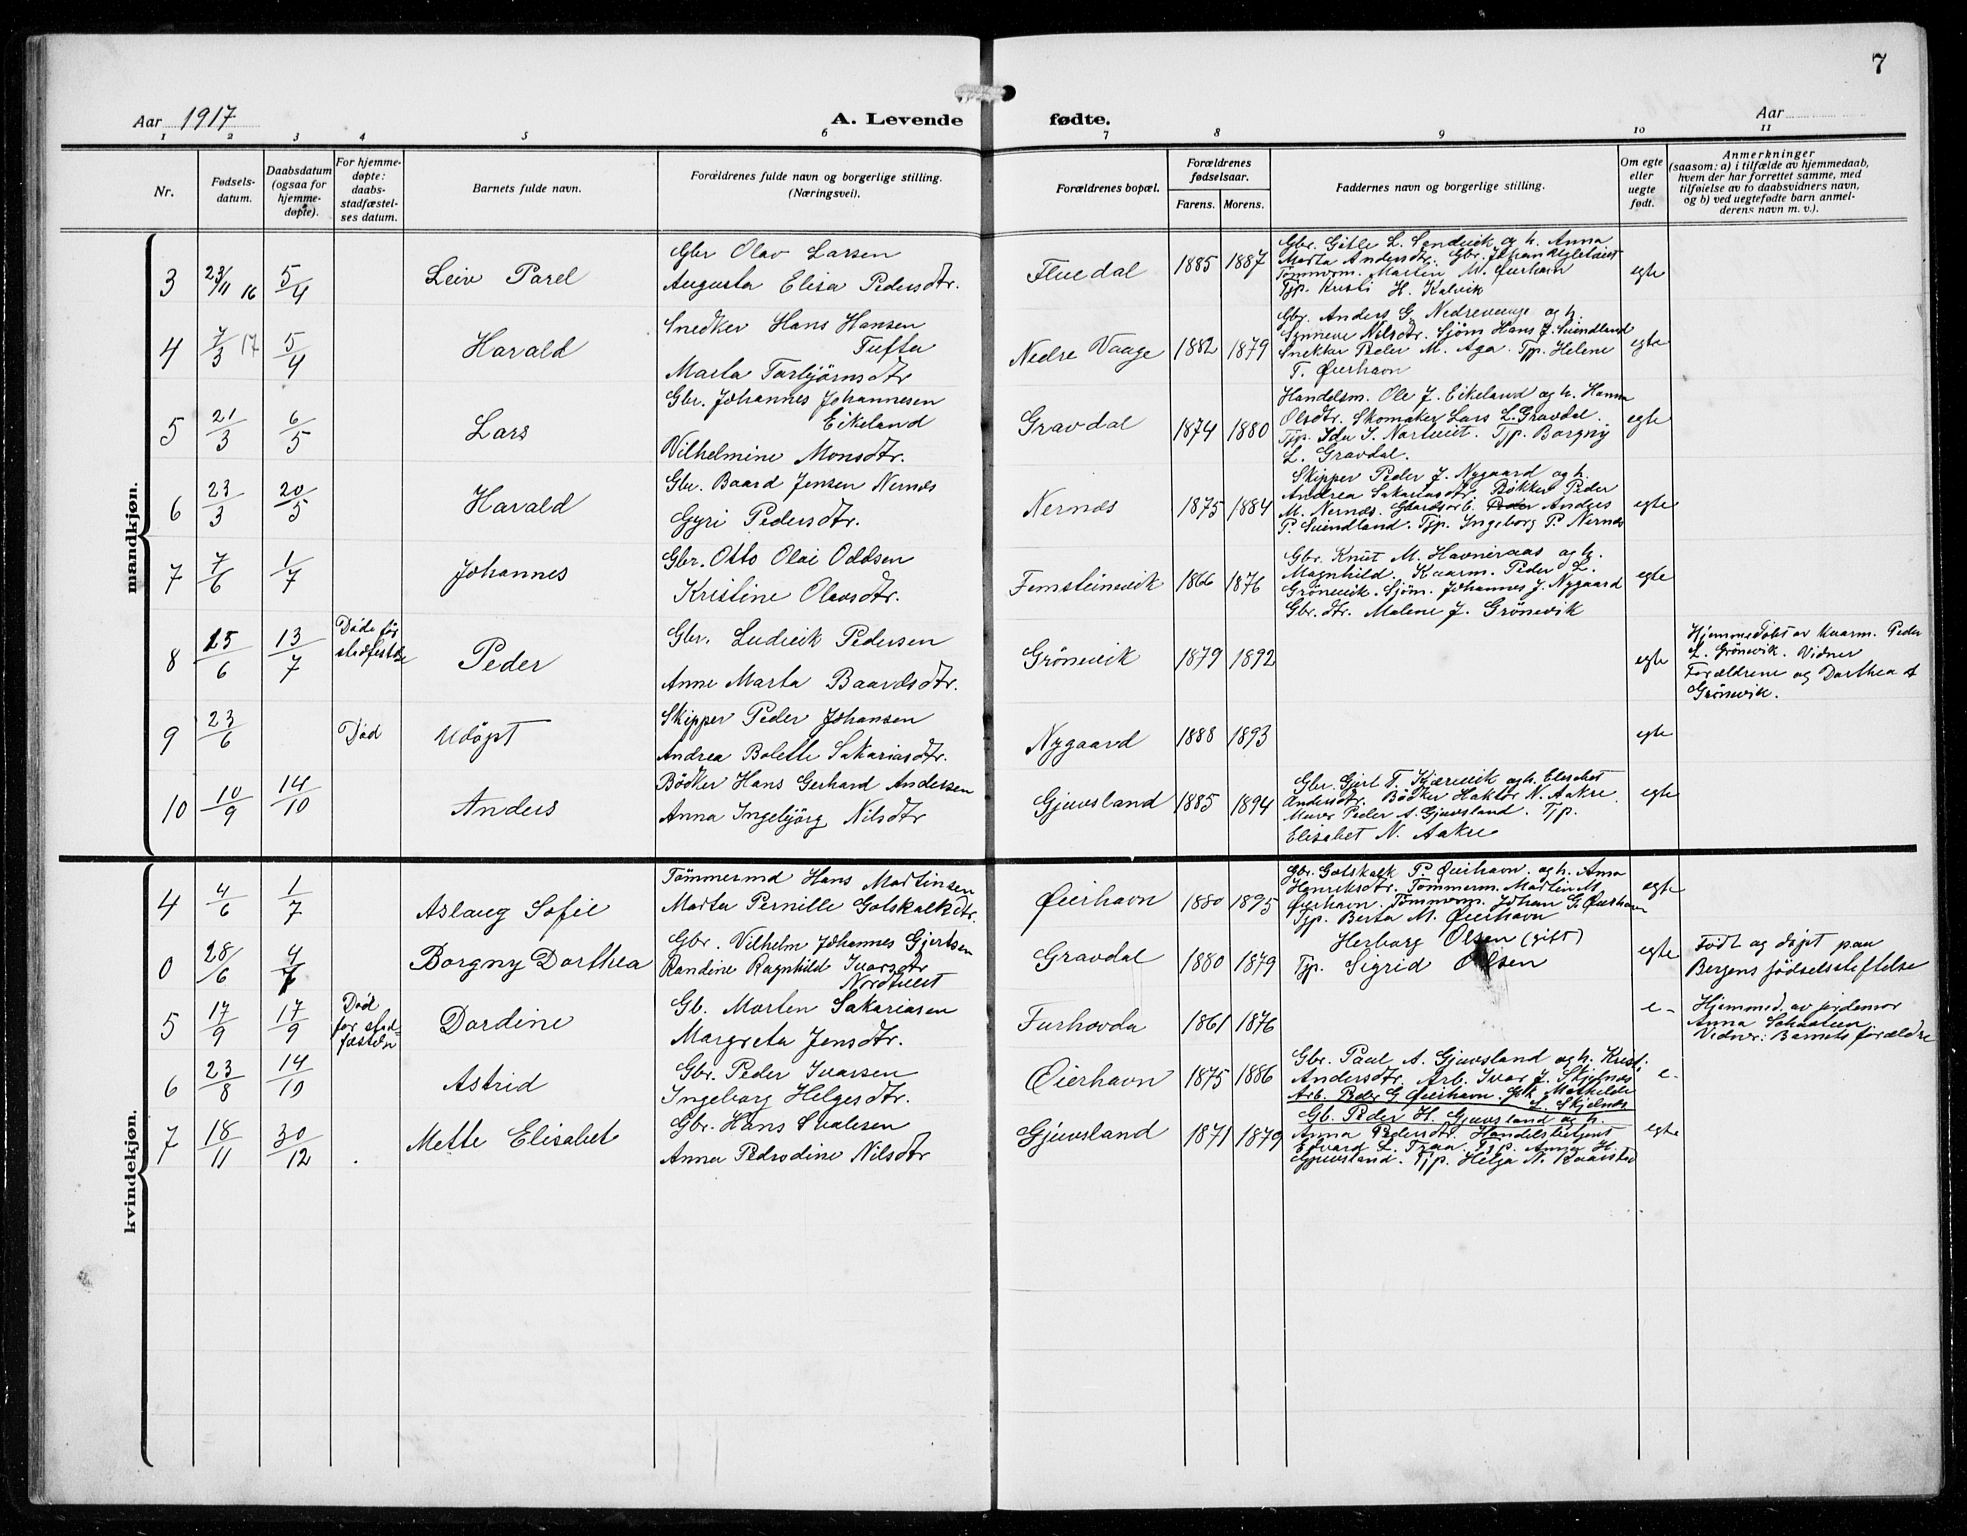 7
Aar 1917
A. Levende fødte.
Aar
1 2 3 4 5 6 7 8 9 10 11
Nr.
Fødsels-
datum.
Daabsdatum
(ogsaa for
hjemme-
døpte).
For hjemme-
døpte:
daabs-
stadfæstel-
ses datum.
Barnets fulde navn.
Forældrenes fulde navn og borgerlige stilling.
(Næringsvei).
Forældrenes bopæl.
Forældrenes
fødselsaar.
Farens. Morens.
Faddernes navn og borgerlige stilling.
Om egte
eller
uegte
født.
Anmerkninger
(saasom: a) i tilfælde av hjemmedaab,
hvem der har forrettet samme, med
tilføielse av to daabsvidners navn,
og b) ved uegtefødte barn anmel-
derens navn m. v.).
mandkjøn.
3 23/11 16 5/4 Leiv Parel
Gbr Olav Larsen
Augusta Elisa Pedersdtr.
Fluedal 1885 1887
Gbr. Gitle L. Sendvik og h. Anna
Marta Andersdtr. Gbr. Johan
Tömmerm. Martin M. Øierhavn
Tjp. Kristi H. Kalvik
egte
4 7/3 17 5/4 Harald
Snedker Hans Hansen
Tufta
Marta Torbjörnsdtr
Nedre Vaage 1882 1879
Gbr. Anders G. Nedrevaage og h.
Synneve Nilsdtr. Sjöm Hans J. Suindland
Snekker Peder M. Aga. Tjp. Helene
T. Øierhavn
egte
5 21/3 6/5 Lars
Gbr. Johannes Johannesen
Eikeland
Vilhelmine Monsdtr.
Gravdal 1874 1880
Handelsm. Ole J. Eikeland og h. Hanna
Olsdtr. Skomaker Lars L. Gravdal.
Tjp. Ida I. Nortveit. Tjp. Borgny
L. Gravdal.
egte
6 23/3 20/5 Harald
Gbr. Baard Jensen Nernæs
Gyri Pedersdtr.
Nernæs 1875 1884
Skipper Peder J. Nygaard og h.
Andrea Sakariasdtr. Bökker Peder
M. Nernæs. Gbr. Anders
P. Suindland. Tjp. Ingeborg P. Nernæs
egte
7 7/6 1/7 Johannes
Gbr. Otto Olai Oddsen
Kristine Olavsdtr.
Femsteinevik 1866 1876
Gbr. Knut M. Havneraas og h.
Magnhild. Kvarm. Peder L.
Grönevik. Sjöm. Johannes J. Nygaard
Gbr. dtr. Malene J. Grönevik
egte
8 25/6 13/7 Döde før
stadfestelse
Peder
Gbr. Ludvik Pedersen
Anne Marta Baardsdtr.
Grönevik 1879 1892
egte
Hjemmedöbt av Kvarm. Peder
L. Grönevik. Vidner
Forældrene og Dorthea
Grönevik.
9 23/6 Död Udöpt
Skipper Peder Johansen
Andrea Bolette Sakariasdtr.
Nygaard 1888 1893
egte
10 10/9 14/10 Anders
Bödker Hans Gerhard Andersen
Anna Ingebjörg Nilsdtr
Gjuvsland 1885 1894
Gbr. Gjert T. Kjærevik og h. Elisabet
Andersdtr. Bödker Haktor N. Aakre
Murer Peder A. Gjuvsland. Tjp.
Elisabet N. Aakre
egte
kvindekjøn.
4 4/6 1/7 Aslaug Sofie
Tömmermd Hans Martinsen
Marta Pernille Gotskalksdtr.
Øierhavn 1880 1895
Gbr. Gotskalk P. Øierhavn. og h. Anna
Henriksdtr. Tömmerm. Martin M.
Øierhavn. Tömmerm. Johan G. Øierhavn
Tjp. Berta M. Øierhavn
egte
0 28/6 4/7 Borgny Dorthea
Gbr. Vilhelm Johannes Gjertsen
Randine Ragnhild Ivarsdtr
Nordtveit
Gravdal 1880 1879
Herborg Olsen (gift)
Tjp. Sigrid Olsen
egte
Födt og döpt paa
Bergens födselsstiftelse
5 17/9 17/9 Död
før stad-
fæsteln
Dordine
Gb. Morten Sakariasen
Margreta Jensdtr.
Furhovda 1861 1876
e-
Hjemmed. av jordemor
Anna
Vidner: Barnets forældre
6 23/8 14/10 Astrid
Gbr. Peder Ivarsen
Ingeborg Helgesdtr.
Øierhavn 1875 1886
Gbr. Paul A. Gjuvsland og h. Kristi
Andersdtr. Arb. Ivar J. Skjelnæs
Arb. Peder G. Øierhavn. Gk. Matkilde
L. Skjelnæs
e-
7 18/11 30/12 Mette Elisabet
Gbr. Hans Svalesen
Anna Pedrodine Nilsdtr
Gjuvsland 1871 1879
Gb. Peder H. Gjuvsland og h.
Anna Pedersdtr. Handelsbetjent
Edvard L. Traa. Tjp. Anna H.
Gjuvsland. Tjp. Helga N. Kvarstad
egte